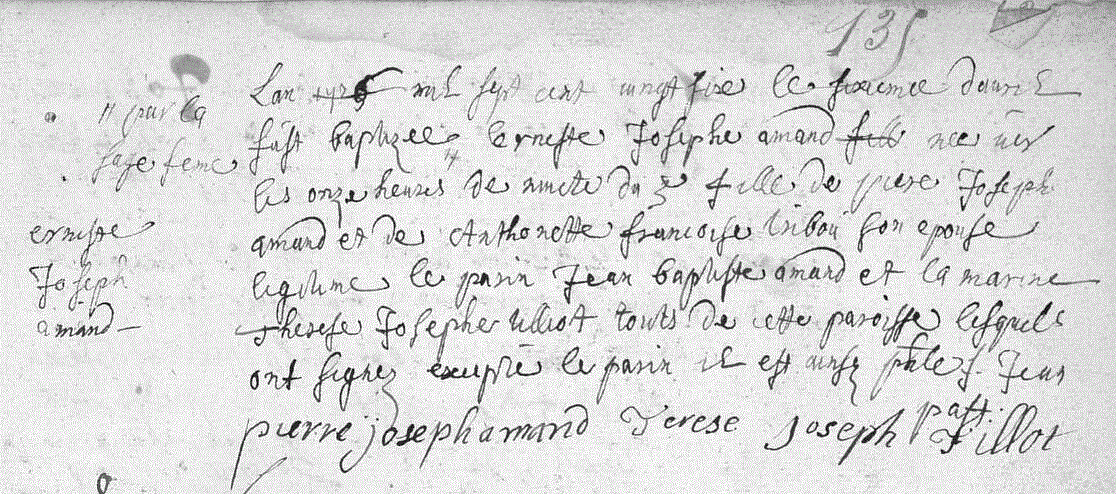 135
Lan mil sept cent vingt sixe le sixieme davril
fust baptizee Erneste Josephe amand fille nee ver
les onze heures de nuicte du 5 fille de piere Joseph
amand et de Anthonette francoise Tribou son epouse
legitime le parin Jean baptiste amand et la marine
Therese Josephe Tilliot touts de cette paroisse lesquels
ont signez excepte le parin il est ainsy J. Jean
past.
pierre joseph amand Terese Joseph Tillot
par la
sage feme
erneste
Joseph
amand